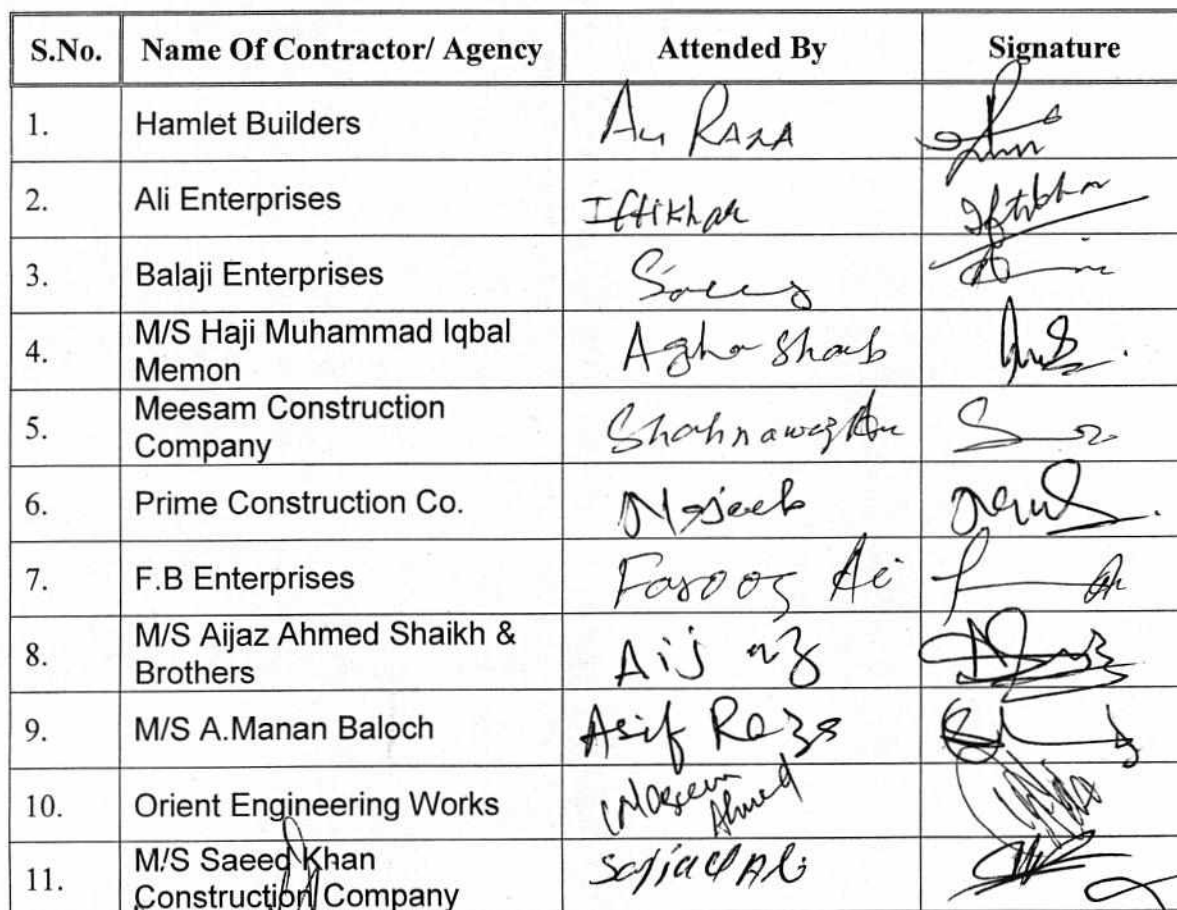 S.No. Name Of Contractor/ Agency Attended By Signature
1. Hamlet Builders Ali RAZA
2. Ali Enterprises Iftikhar Iftikhar
3. Balaji Enterprises
4. M/S Haji Muhammad Iqbal
Memon Agha Shoaib
5. Meesam Construction
Company Shahnawaz
6. Prime Construction Co. Najeeb
7. F.B Enterprises Farooq Ali
8. M/S Aijaz Ahmed Shaikh &
Brothers Aijaz
9. M/S A.Manan Baloch Asif Raza
10. Orient Engineering Works Waseem
Ahmed
11. M/S Saeed Khan
Construction Company Sajjad Ali